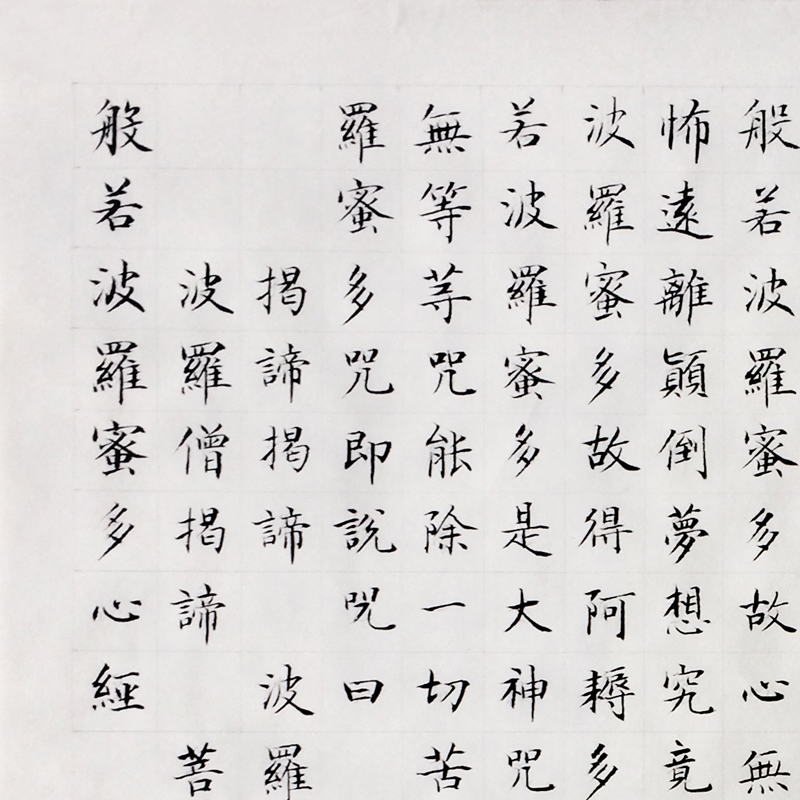 般若波羅蜜多故心無
怖遠離顛倒夢想究竟
波羅蜜多故得阿耨多
若波羅蜜多是大神咒
無等等咒能除一切苦
羅蜜多咒即說咒曰
揭諦揭諦 波羅
波羅僧揭諦 菩
般若波羅蜜多心經